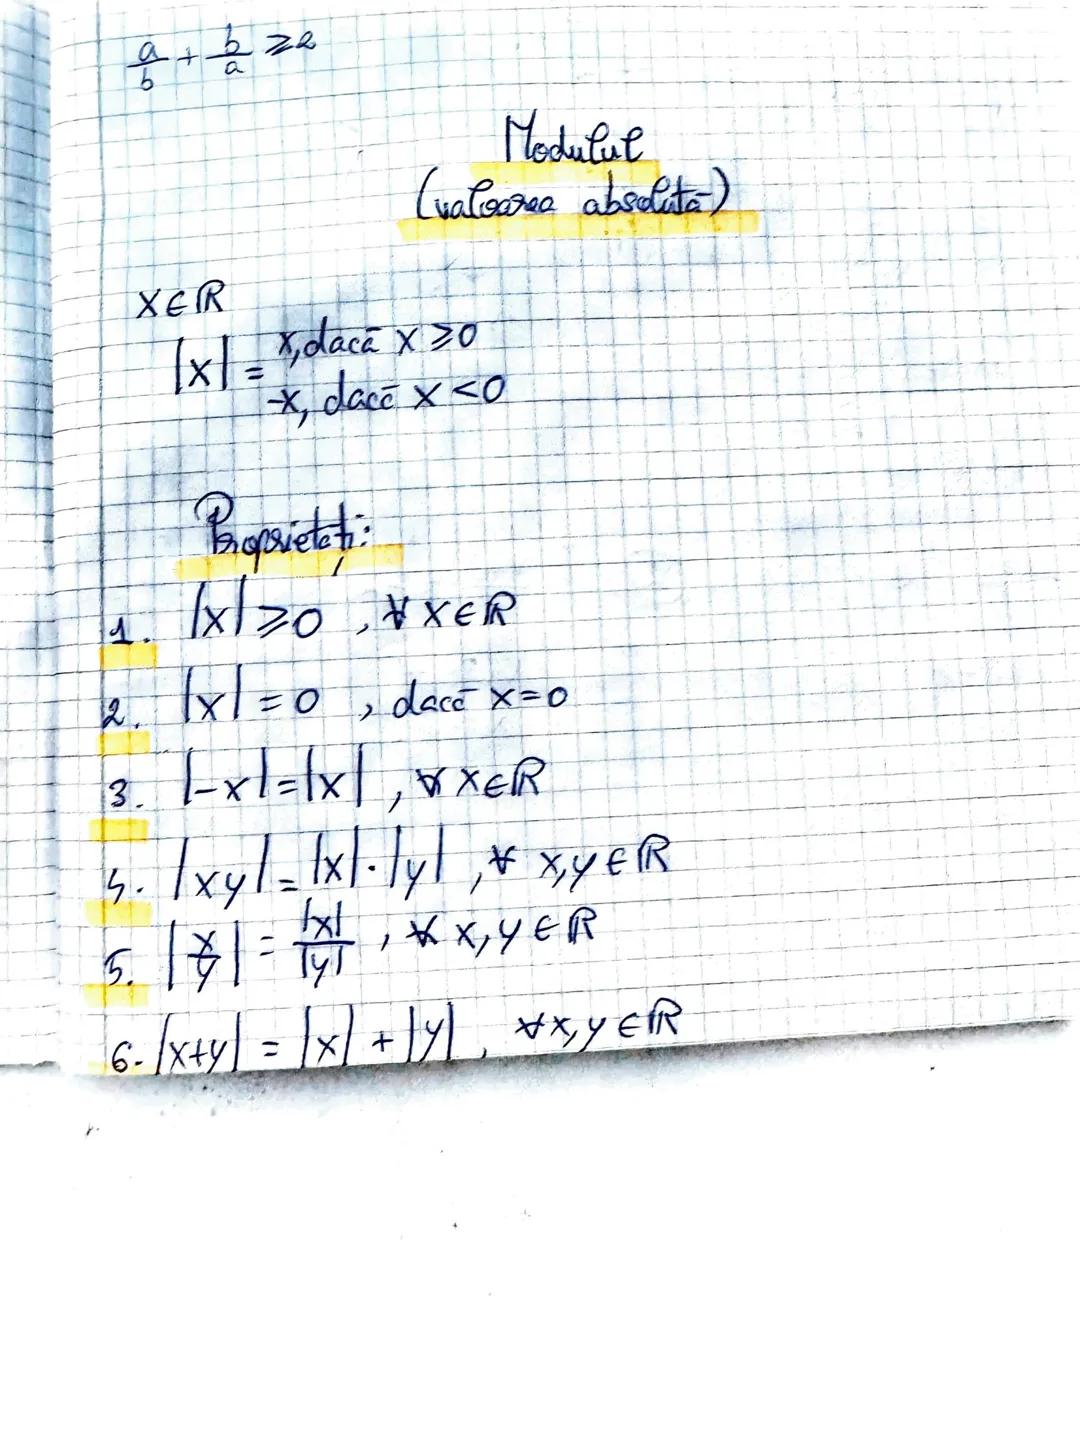 a/b + b/a ≥ 2
Modulul
(valoarea absolută)
x∈ℝ
|x| = x, dacă x ≥ 0
-x, dacă x < 0
Proprietăți:
1. |x| ≥ 0, ∀ x∈ℝ
2. |x| = 0, dacă x=0
3. |-x| = |x|, ∀ x∈ℝ
4. |xy| = |x|·|y|, ∀ x,y∈ℝ
5. |x/y| = |x|/|y|, ∀ x,y∈ℝ
6. |x+y| = |x| + |y|, ∀x,y∈ℝ